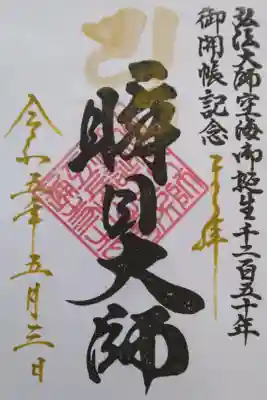 弘法大師空海御誕生千二百五十年
御開帳記念
奉拝
瞬目大師
令和五年五月三日